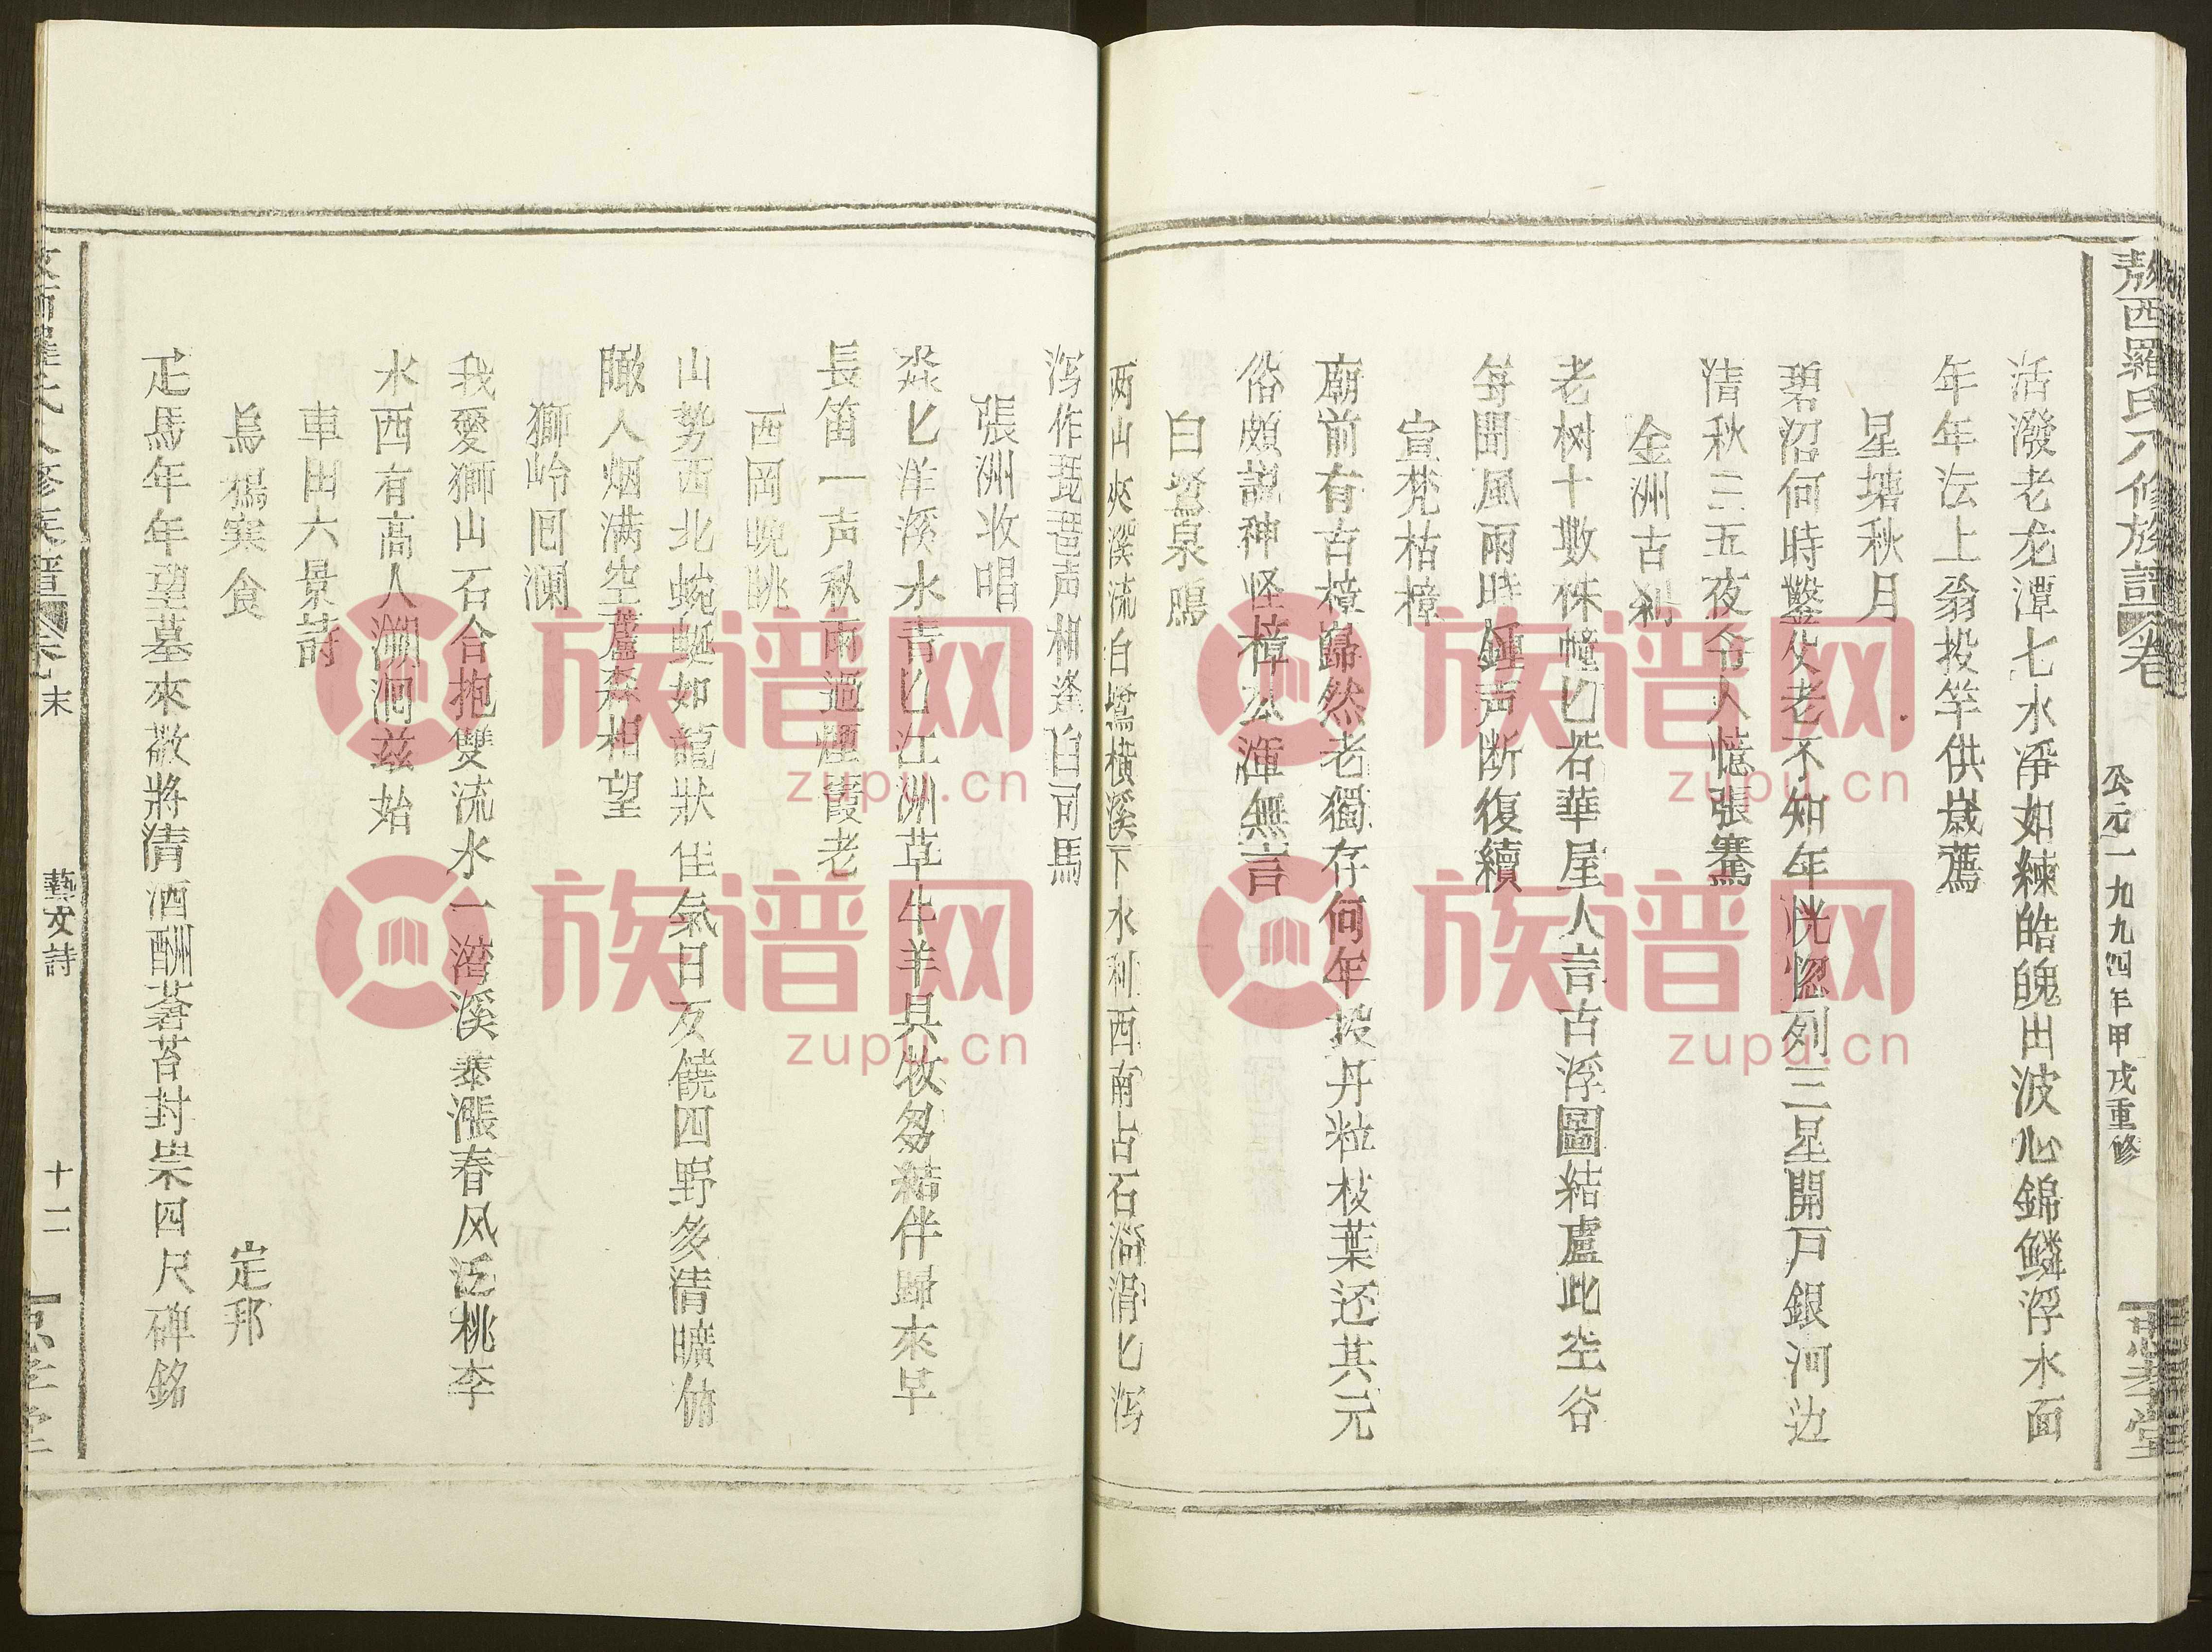 敖西羅氏八修族譜 卷
公元一九九四年甲戌重修
忠孝堂
活潑老龙潭七水淨如練皓魄出波心錦鱗浮水面
年年法上翁投竿供歲薦
星塘秋月
碧沼何時鑿父老不知年恍惚列三星開戸銀河边
清秋三五夜令人憶張騫
金洲古刹
老树十数株幢匕若華屋人言古浮圖結廬此空谷
每聞風雨時鍾声断復續
宣梵枯樟
廟前有古樟巋然老獨存何年投丹粒枝葉还其元
俗頗説神怪樟公渾無言
白鷺泉鳴
两山夾溪流白鷺橫溪下水利西南占石滑滑匕泻
泻作琵琶声相逢白司馬
張洲收唱
淼匕洋溪水青匕江洲草牛羊具牧芻結伴歸來早
長笛一声秋雨過煙霞老
西岡晚眺
山势西北蜿蜒如龍狀佳氣日友饒四野多清曠俯
瞰人烟满空蘆森相望
獅岭囘瀾
我愛獅山石合抱雙流水一灣溪泰漲春风泛桃李
水西有高人溯洄兹始
車田六景詩
烏楊寒食
定邦
疋馬年年望墓來敬將清酒酬蒼苔封祟四尺碑銘
末
藝文詩
十二